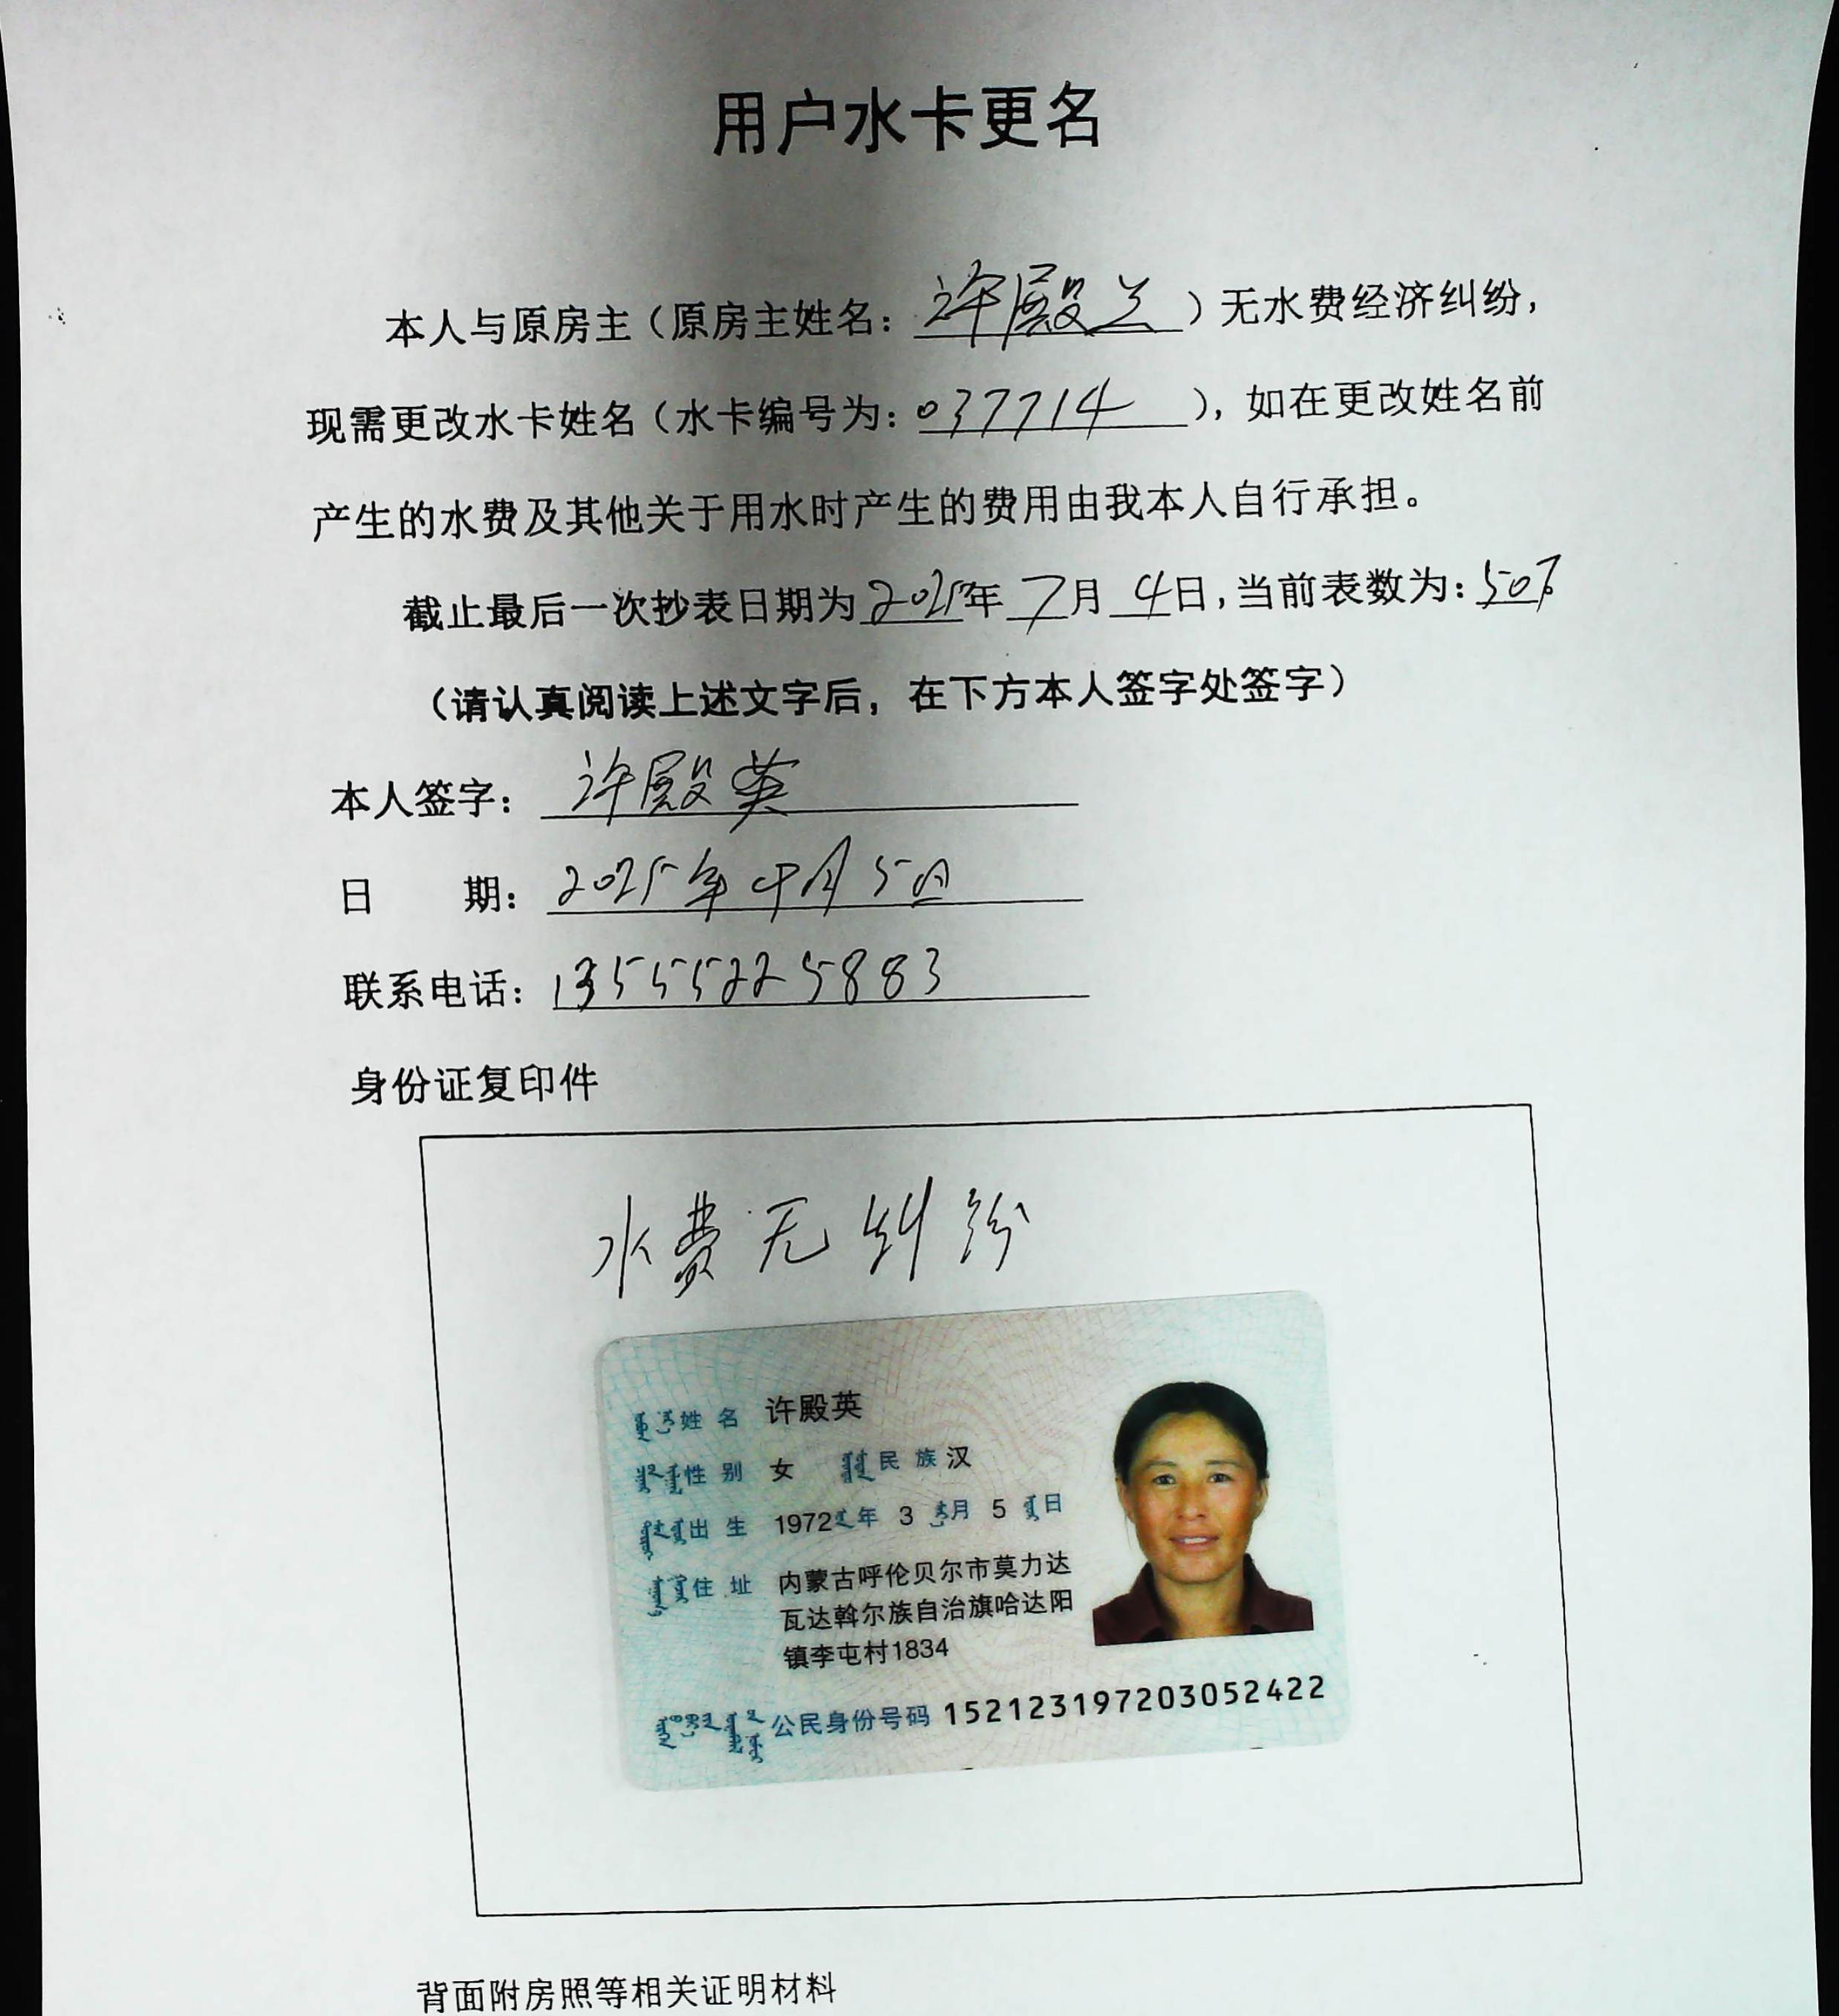 用户水卡更名
本人与原房主（原房主姓名：许殿兰）无水费经济纠纷，
现需更改水卡姓名（水卡编号为：037714），如在更改姓名前
产生的水费及其他关于用水时产生的费用由我本人自行承担。
截止最后一次抄表日期为2025年7月4日，当前表数为：506
（请认真阅读上述文字后，在下方本人签字处签字）
本人签字：许殿英
日 期：2025年 月5日
联系电话：13555225883
身份证复印件
水费无纠纷
姓名 许殿英
性别 女 民族 汉
出生 1972年3月5日
住址 内蒙古呼伦贝尔市莫力达
瓦达斡尔族自治旗哈达阳
镇李屯村1834
公民身份号码 152123197203052422
背面附房照等相关证明材料